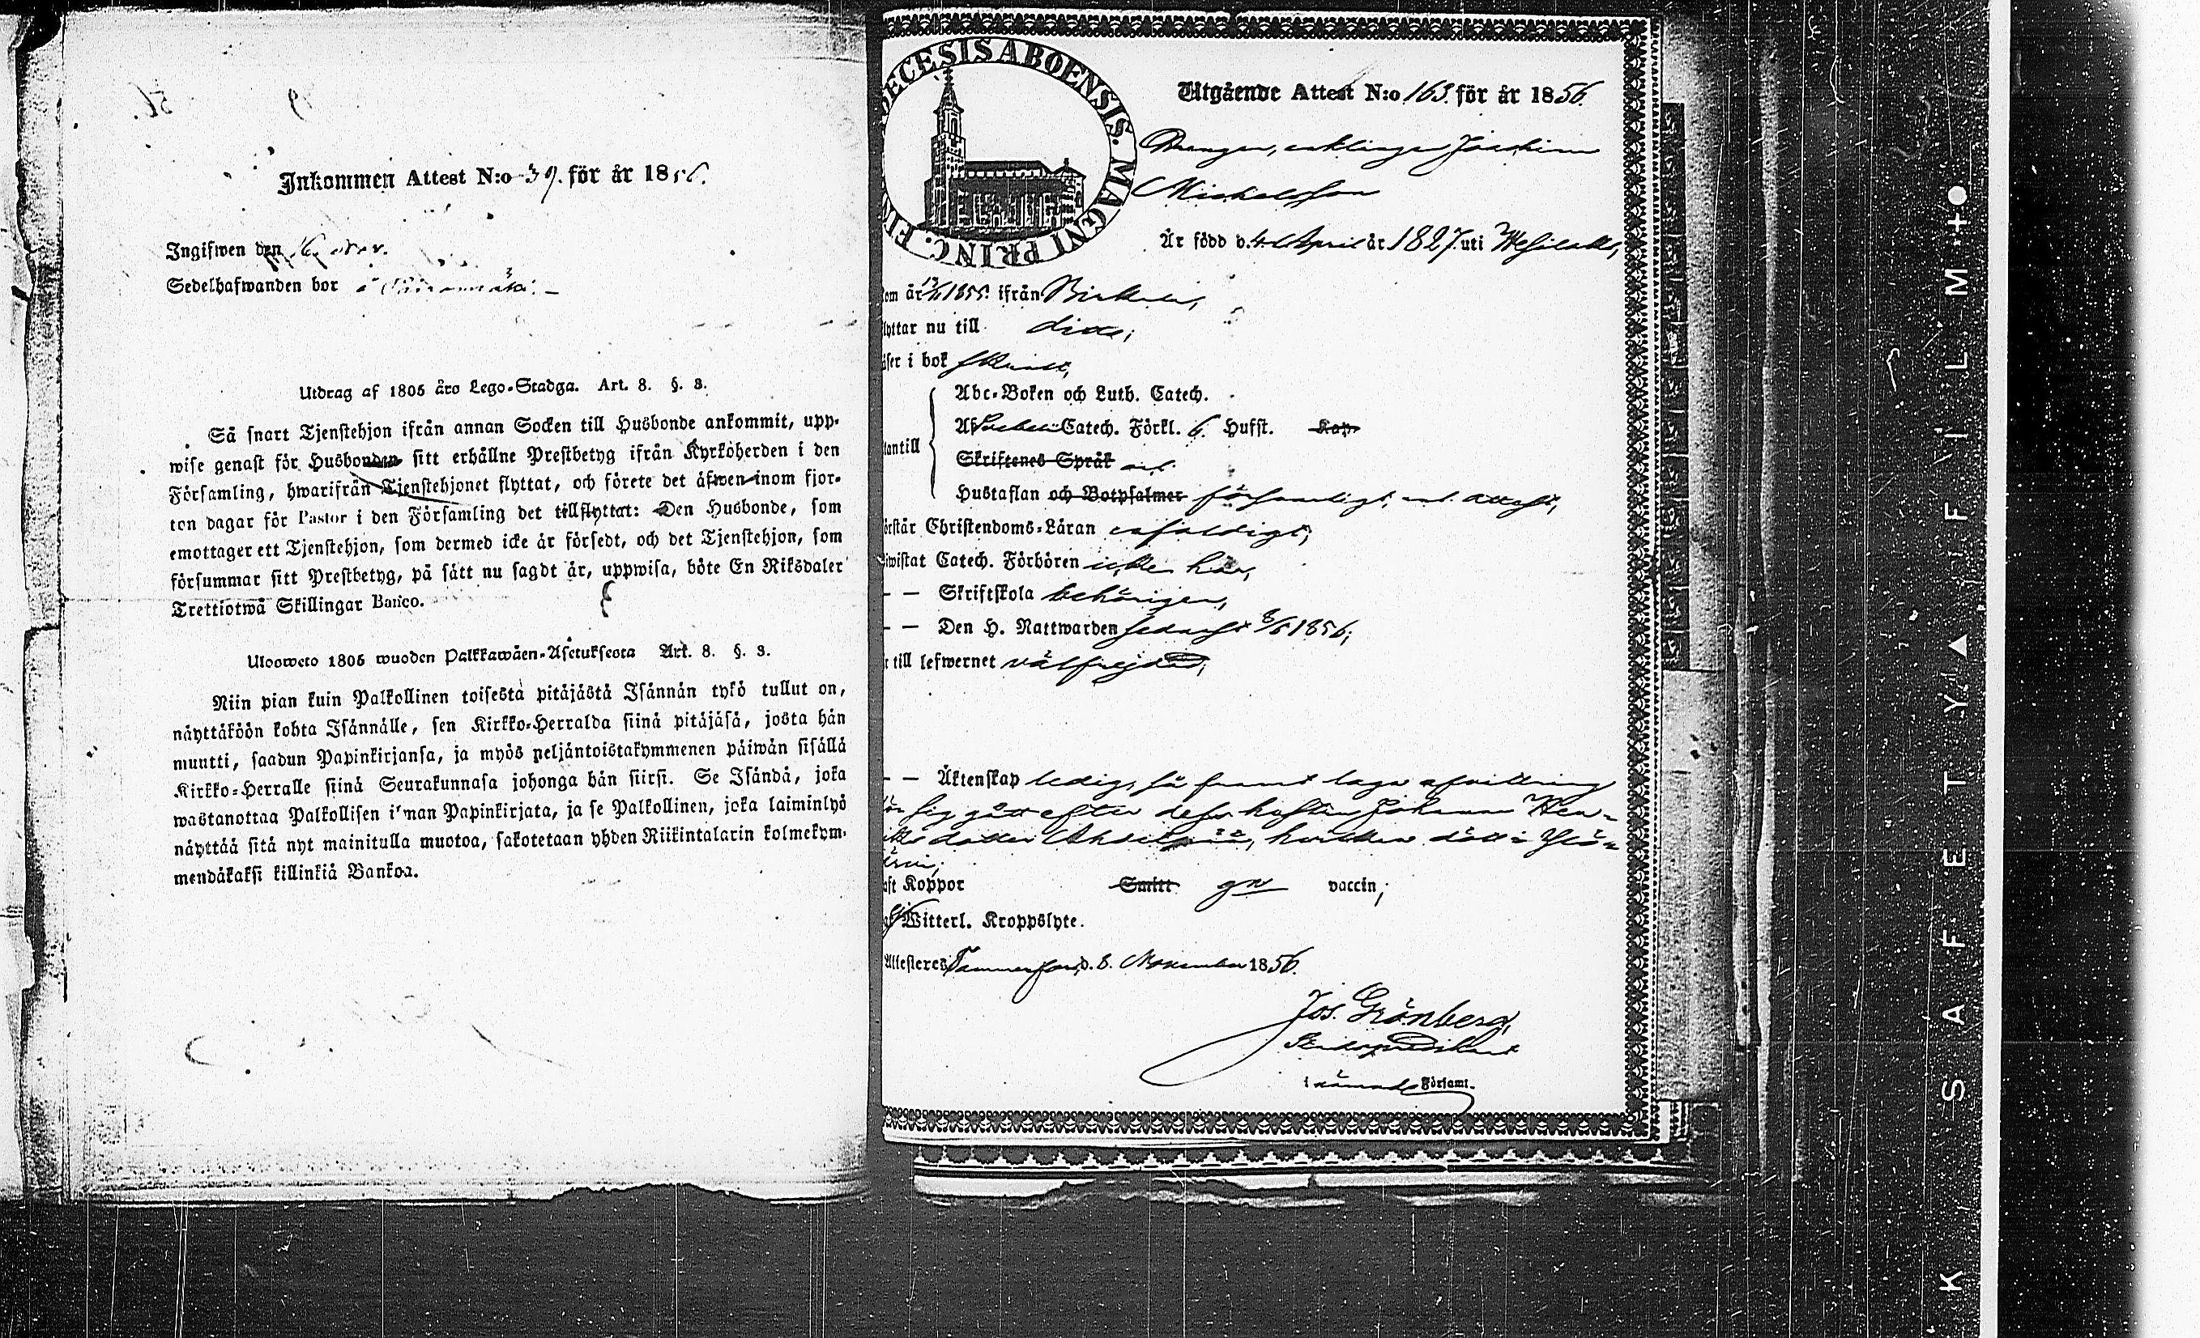 Inkommen Attest N:o 39. för år 1856.
Ingifwen den 16 Nov.
Sedelhafwanden bor å
Utdrag af 1805 års Lego-Stadga. Art. 8. §. 3.
Så snart Tjenstehjon ifrån annan Socken till Husbonde ankommit, upp-
wise genast för Husbonden sitt erhållne Prestbetyg ifrån Kyrkoherden i den
Församling, hwarifrån Tjenstehjonet flyttat, och förete det äfwen inom fjor-
ton dagar för Pastor i den Församling det tillflyttat: Den Husbonde, som
emottager ett Tjenstehjon, som dermed icke är försedt, och det Tjenstehjon, som
försummar sitt Prestbetyg, på sätt nu sagdt är, uppwisa, böte En Riksdaler
Trettiotwå Skillingar Banco.
Ulosweto 1805 wuoden Palkkawäen-Asetuksesta Art. 8. §. 3.
Niin pian kuin Palkollinen toisesta pitäjästä Isännän tykö tullut on,
näyttäköön kohta Isännälle, sen Kirkko-Herralda siinä pitäjäsä, josta hän
muutti, saadun Papinkirjansa, ja myös neljäntoistakymmenen päiwän sisällä
Kirkko-Herralle siinä Seurakunnasa johonga hän siirsi. Se Isändä, joka
wastanottaa Palkollisen i'man Papinkirjata, ja se Palkollinen, joka laiminlyö
näyttää sitä nyt mainitulla muotoa, sakotetaan yhden Riikintalarin kolmekym-
mendäkaksi killinkiä Bankoa.
ECESIS ABOENSIS. MAGNI PRINC. FIN
Utgående Attest N:o 163. för år 1856.
Drengen, enklingen Joachim
Michelsson
Är född d. 4 April år 1827. uti Wesilaks,
om år 1855. ifrån Birkala,
lyttar nu till dito;
äser i bok
Abc-Boken och Luth. Catech.
Af Catech. Förkl. 6 Hufst. Kap.
utantill
Skriftenes Språk
Hustaflan och Botpsalmer försvarligt, enl. attest,
örstår Christendoms-Läran enfaldigt;
iwistat Catech. Förhören icke här,
– – Skriftskola behörigen,
– – Den H. Nattwarden sednast 8/6 1856;
t till lefwernet välfrejdad;
– – Äktenskap ledig, så framt laga afvittring
för sig gått efter dess hustru Johanna Hen-
riksdotter, hvilken dött i Ylö-
järvi;
aft Koppor Smitt gm vaccin;
Witterl. Kroppslyte.
Attesteres Tammerfors d. 8. November 1856.
Jos. Grönberg,
i nämnde Församl.
K SAFETY▲FILM+●